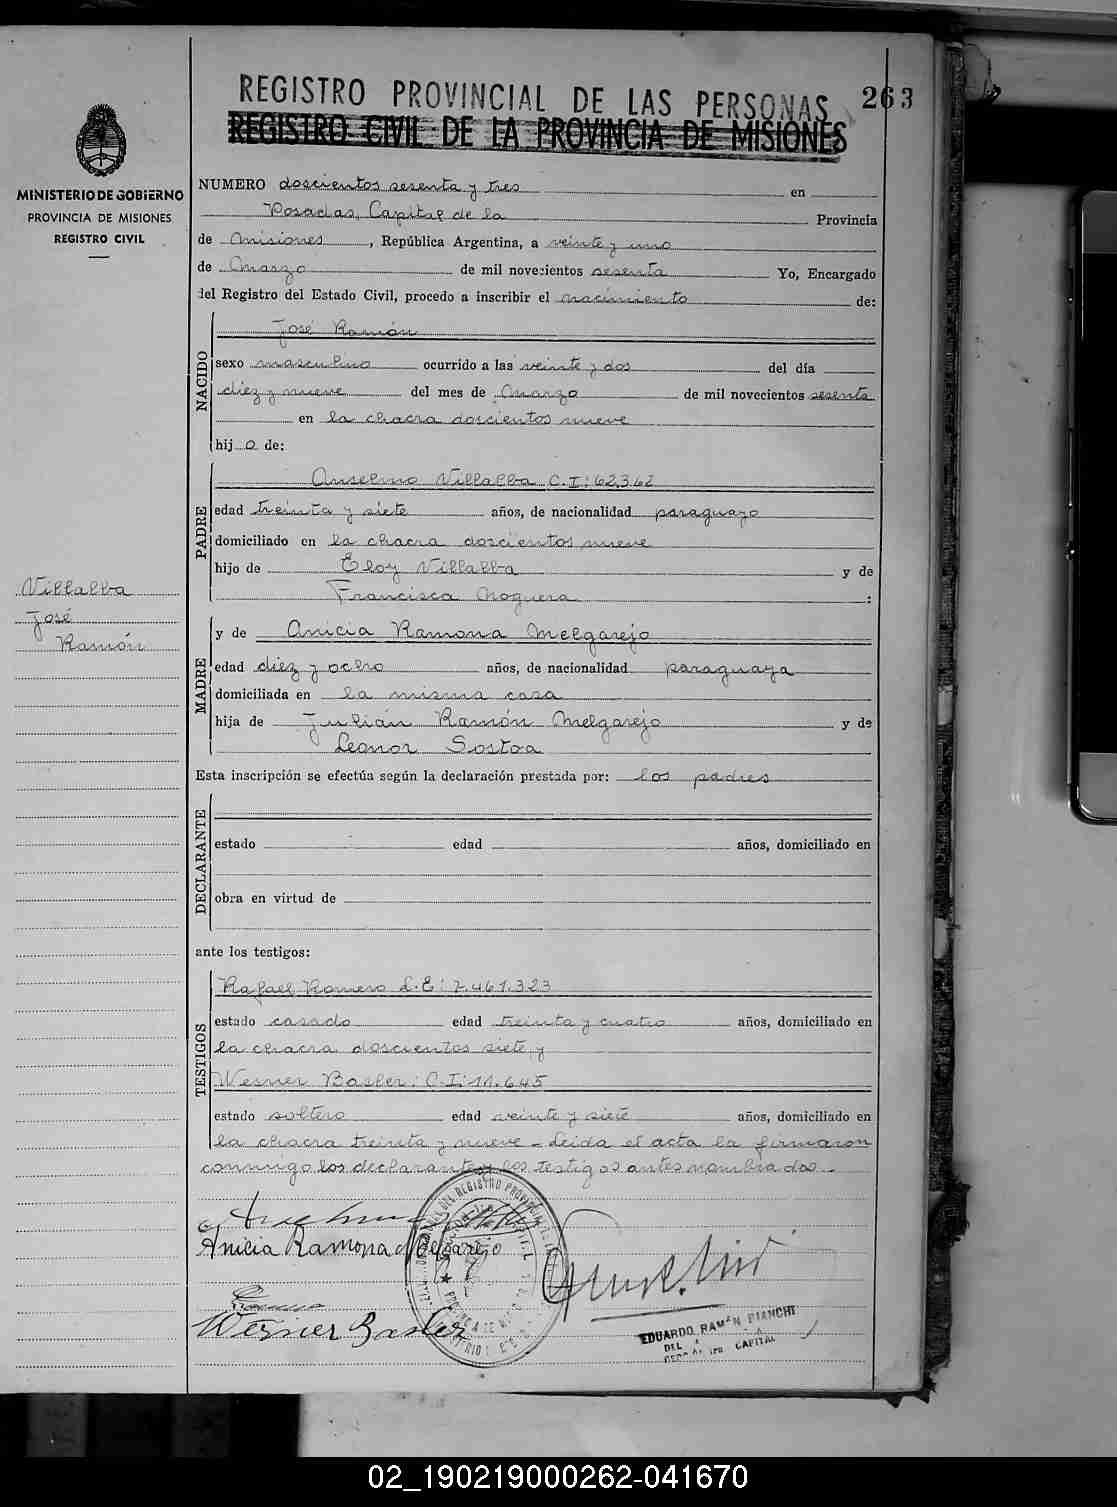 REGISTRO PROVINCIAL DE LAS PERSONAS
263
REGISTRO CIVIL DE LA PROVINCIA DE MISIONES
MINISTERIO DE GOBIERNO
PROVINCIA DE MISIONES
REGISTRO CIVIL
NUMERO doscientos sesenta y tres en
Posadas, Capital de la Provincia
de Misiones, República Argentina, a veinte y uno
de Marzo de mil novecientos sesenta Yo, Encargado
del Registro del Estado Civil, procedo a inscribir el nacimiento de:
NACIDO
José Ramón
sexo masculino ocurrido a las veinte y dos del día
diez y nueve del mes de Marzo de mil novecientos sesenta
en la chacra doscientos nueve
hij o de:
PADRE
Anselmo Villalba C.I: 62.362
edad treinta y siete años, de nacionalidad paraguayo
domiciliado en la chacra doscientos nueve
hijo de Eloy Villalba y de
Francisca Noguera :
Villalba
José
Ramón
MADRE
y de Anicia Ramona Melgarejo
edad diez y ocho años, de nacionalidad paraguaya
domiciliada en la misma casa
hija de Julián Ramón Melgarejo y de
Leonor Sostoa
Esta inscripción se efectúa según la declaración prestada por: los padres
DECLARANTE
estado edad años, domiciliado en
obra en virtud de
ante los testigos:
TESTIGOS
Rafael Romero L.E: 7.461.323
estado casado edad treinta y cuatro años, domiciliado en
la chacra doscientos siete, y
Werner Basler: C.I: 11.645
estado soltero edad veinte y siete años, domiciliado en
la chacra treinta y nueve - Leida el acta la firmaron
conmigo los declarantes y los testigos antes nombrados.-
Anicia Ramona Melgarejo
Werner Basler
EDUARDO RAMÓN BIANCHI
DEL
CAPITAL
02_190219000262-041670